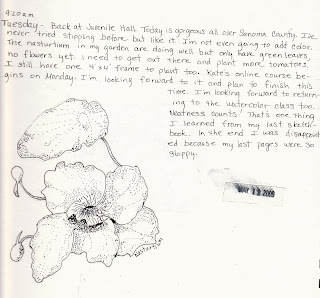 9:20 a.m.
Tuesday - Back at Juvenile Hall. Today is gorgeous all over Sonoma County. I've
never tried stippling before but like it. I'm not even going to add color.
The nasturtium in my garden are doing well but only have green leaves,
no flowers yet. I need to get out there and plant more tomatoes,
I still have one 4'x4' frame to plant too. Kate's online course be-
gins on Monday. I'm looking forward to it and plan to finish this
time. I'm looking forward to return-
ing to the watercolor class too.
Neatness counts! That's one thing
I learned from my last sketch-
book. In the end I was disappoint
ed because my last pages were so
sloppy.
MAY 19 2009
Nasturtium